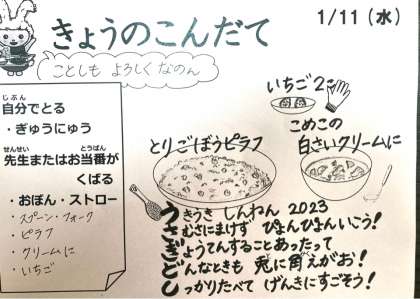 きょうのこんだて
1/11(水)
ことしも よろしく なのん
じぶん
自分でとる
・ぎゅうにゅう
せんせい とうばん
先生またはお当番が
くばる
・おぼん・ストロー
・スプーン・フォーク
・ピラフ
・クリームに
・いちご
いちご2こ
とりごぼうピラフ
こめこの
白さいクリームに
うきうき しんねん 2023
さむさにまけず ぴょんぴょんいこう!
ぎょうてんすることあったって
どんなときも 兎に角えがお!
しっかりたべて げんきにすごそう!